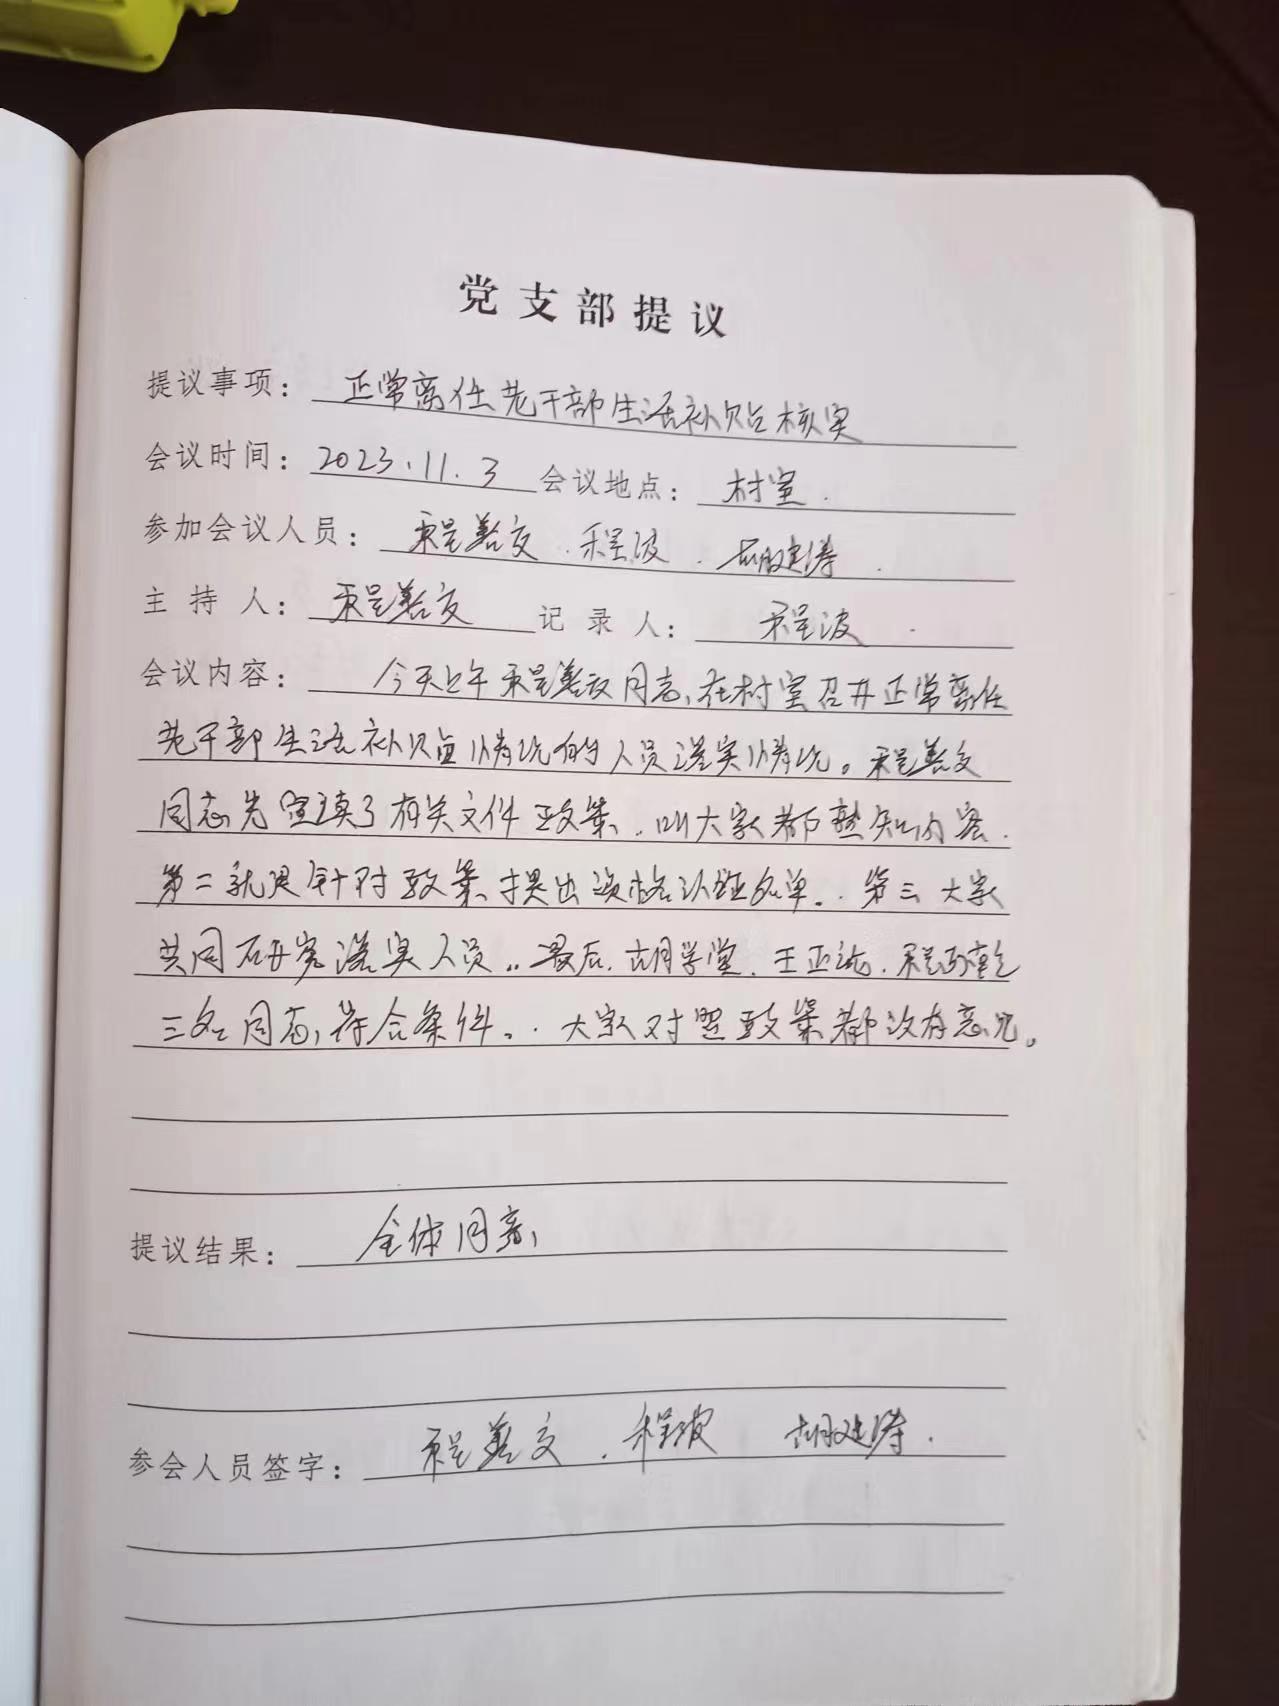 党支部提议
提议事项： 正常离任老干部生活补贴核实
会议时间： 2023.11.3 会议地点： 村室.
参加会议人员： 程善交.程波.胡建涛.
主持人： 程善交 记录人： 程波.
会议内容： 今天上午程善交同志,在村室召开正常离任
老干部生活补贴情况的人员落实情况。程善交
同志先宣读了有关文件政策.叫大家都熟知内容.
第二就是针对政策,提出资格认证名单。.第三大家
共同研究落实人员..最后.胡学堂.王正.程
三名同志,符合条件。.大家对照政策都没有意见。
提议结果： 全体同意,
参会人员签字： 程善交.程波 胡建涛.